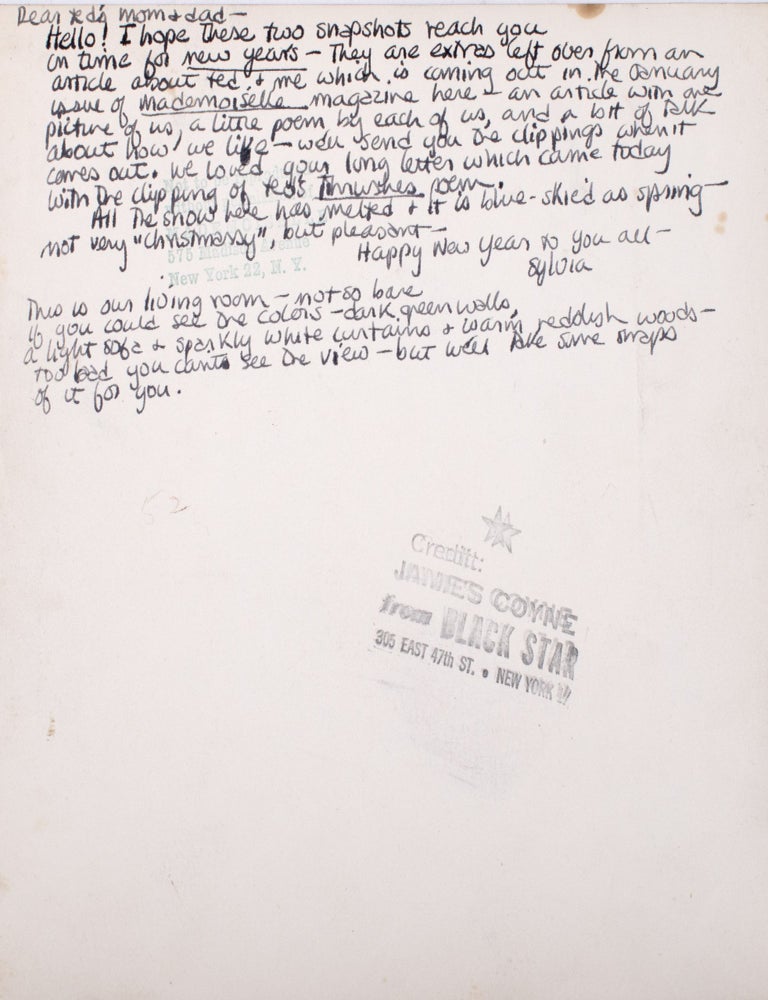 Dear Ted's mom & dad —
Hello! I hope these two snapshots reach you
in time for new years — They are extras left over from an
article about Ted & me which is coming out in the January
issue of mademoiselle magazine here — an article with one
picture of us, a little poem by each of us, and a bit of talk
about how we live — we'll send you the clippings when it
comes out. We loved your long letter which came today
with the clipping of Ted's Thrushes poem.
All the snow here has melted & it is blue-skied as spring —
not very "christmassy", but pleasant —
Happy New Year to you all —
Sylvia
575 Madison Avenue
New York 22, N. Y.
This is our living room — not so bare
if you could see the colors — dark green walls,
a light sofa & sparkly white curtains & warm reddish woods —
too bad you can't see the view — but we'll take some snaps
of it for you.
52
Credit:
JAMES COYNE
from BLACK STAR
305 EAST 47th ST. • NEW YORK 17